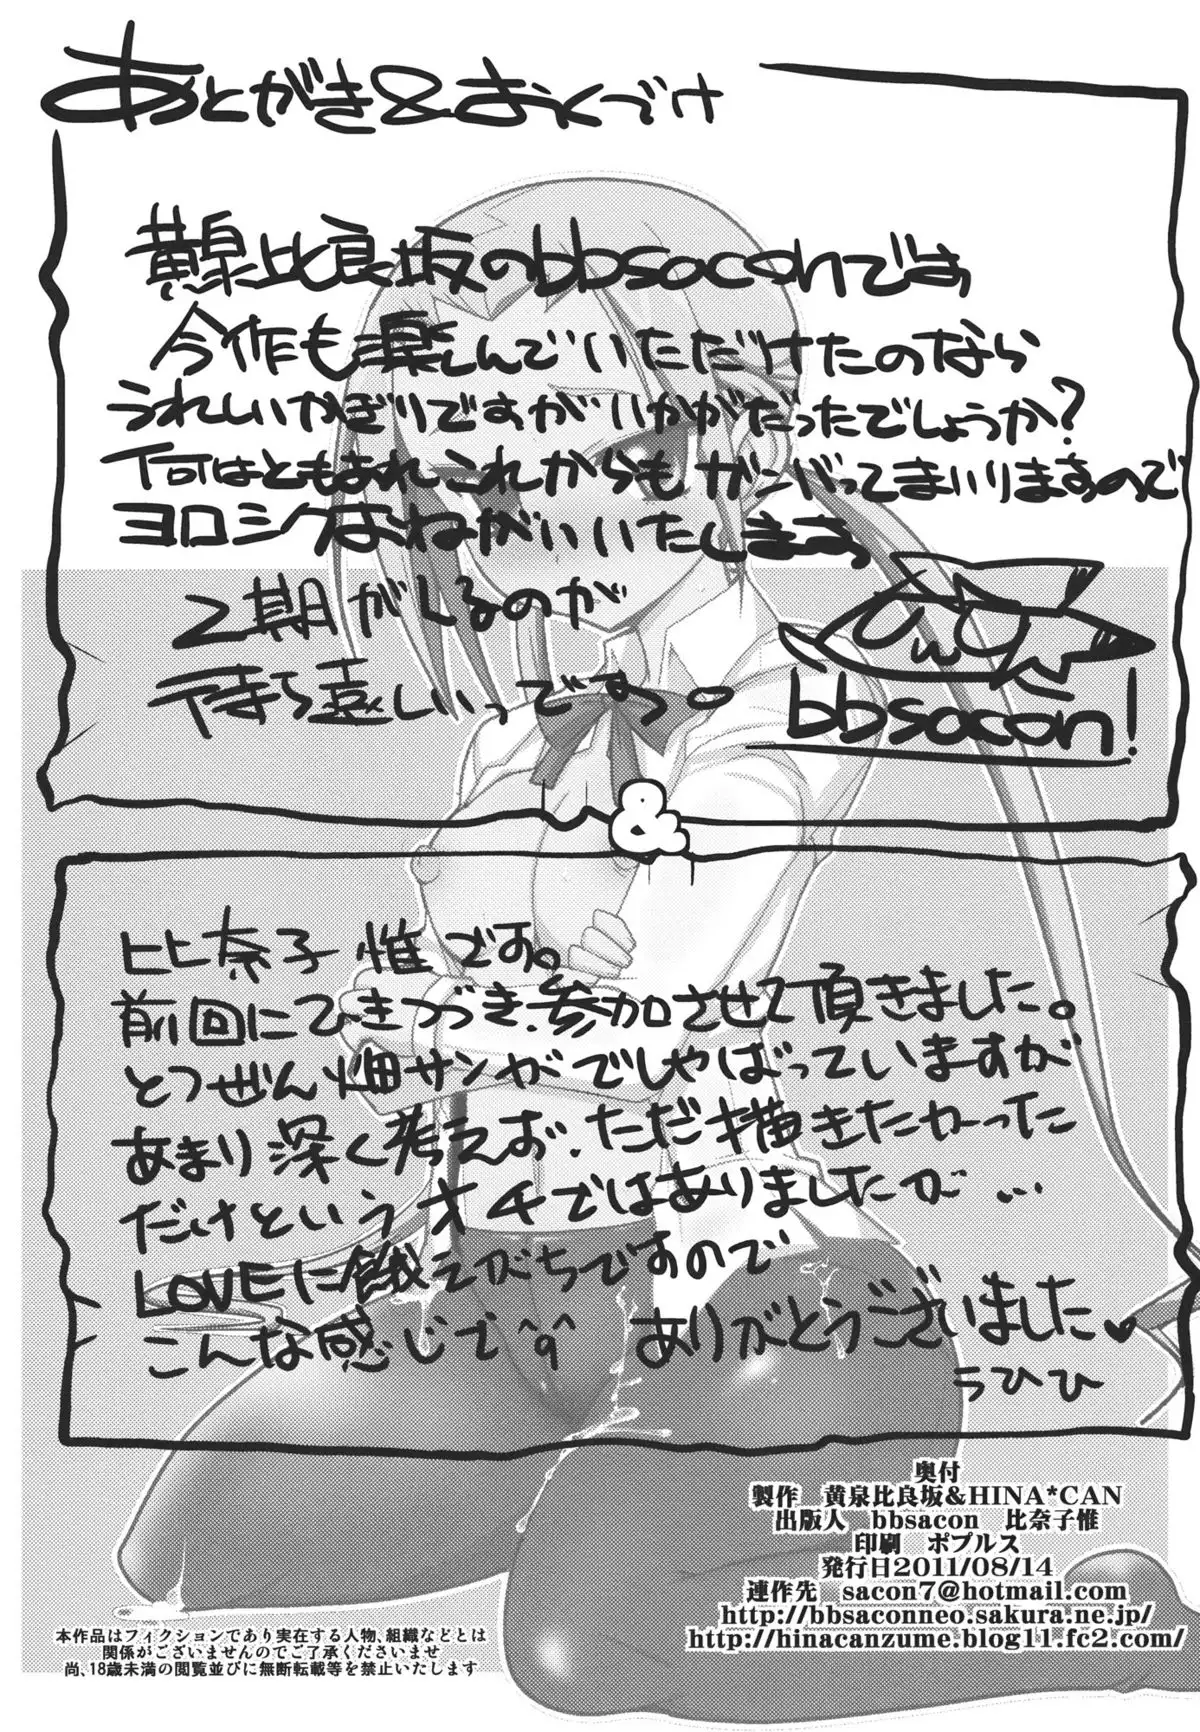 あとがき&おくづけ
黄泉比良坂のbbsaconです
今作も楽しんでいただけたのなら
うれしいかぎりですがいかがだったでしょうか?
何はともあれこれからもガンバってまいりますので
ヨロシクおねがいいたします
2期がくるのが
待ち遠しいっです。
bbsacon!
&
比奈子 惟です。
前回にひきつづき、参加させて頂きました。
とつぜん畑サンがでしゃばっていますが
あまり深く考えず、ただ描きたかった
だけというオチではありましたが…
LOVEに餓えがちですので
こんな感じで^q^ ありがとうございました♥
うひひ
奥付
製作 黄泉比良坂&HINA*CAN
出版人 bbsacon 比奈子惟
印刷 ポプルス
発行日2011/08/14
連作先 sacon7@hotmail.com
http://bbsaconneo.sakura.ne.jp/
http://hinacanzume.blog11.fc2.com/
本作品はフィクションであり実在する人物、組織などとは
関係がございませんのでご了承くださいませ
尚、18歳未満の閲覧並びに無断転載等を禁止いたします